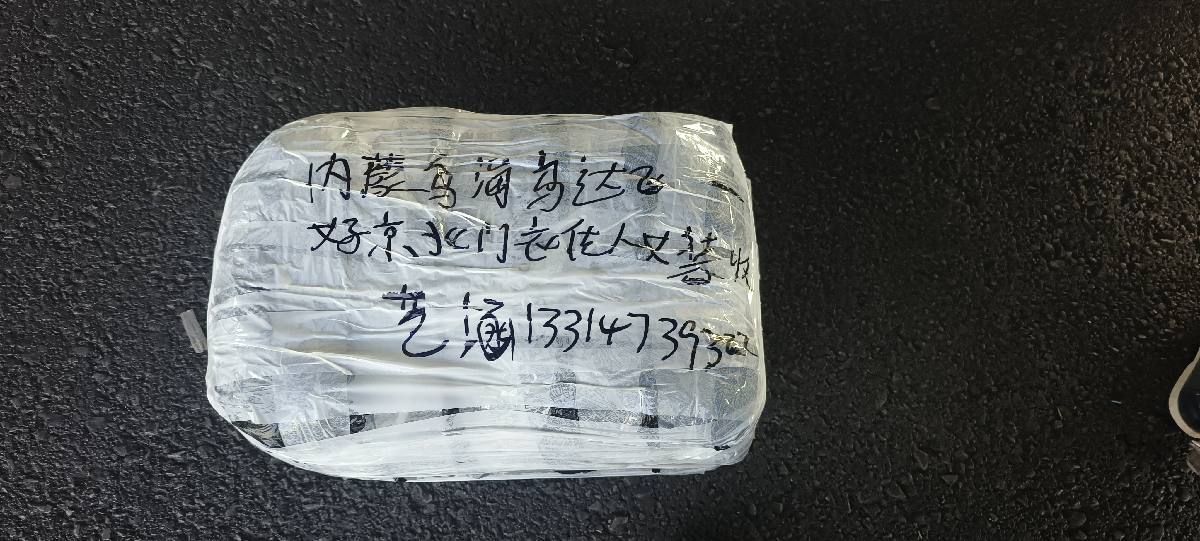 内蒙乌海乌达区
好京北门衣佳人女装收
艺涵133147393